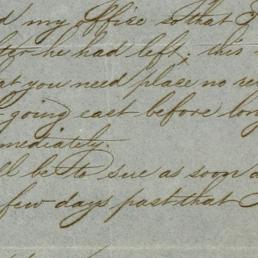 d my office so that I
after he had left. this
at you need place no re
going east before long
mmediately.
ll be to see as soon a
few days past that I